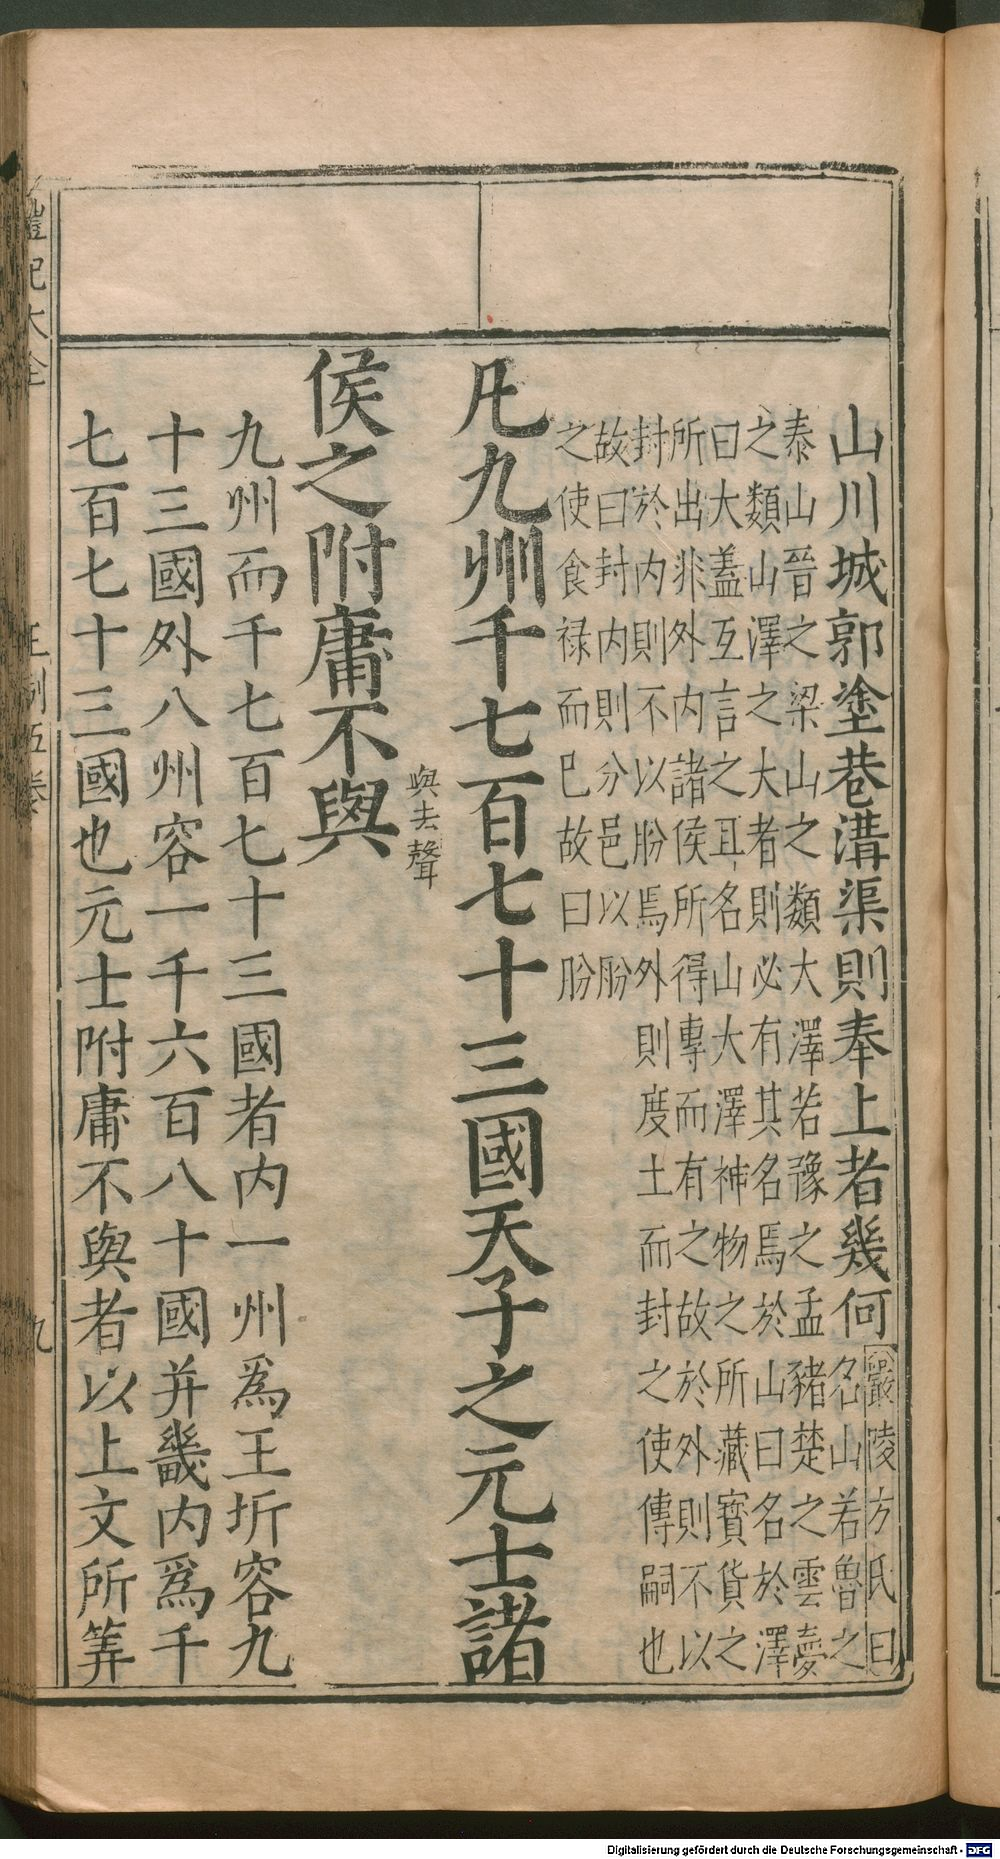 山川城郭塗巷溝渠則奉上者幾何
嚴陵方氏曰
名山若魯之
泰山晉之梁山之類大澤若豫之孟豬楚之雲夢
之類山澤之大者則必有其名焉於山曰名於澤
曰大蓋互言之耳名山大澤神物之所藏寶貨之
所出非外内諸侯所得專而有之故於外則不以
封於内則不以朌焉外則度土而封之使傳嗣也
故曰封内則分邑以朌
之使食禄而已故曰朌
凡九州千七百七十三國天子之元士諸
侯之附庸不與
與去聲
九州而千七百七十三國者内一州爲王圻容九
十三國外八州容一千六百八十國并畿内爲千
七百七十三國也元士附庸不與者以上文所筭
禮記大全
王制五卷
九
Digitalisierung gefördert durch die Deutsche Forschungsgemeinschaft - DFG